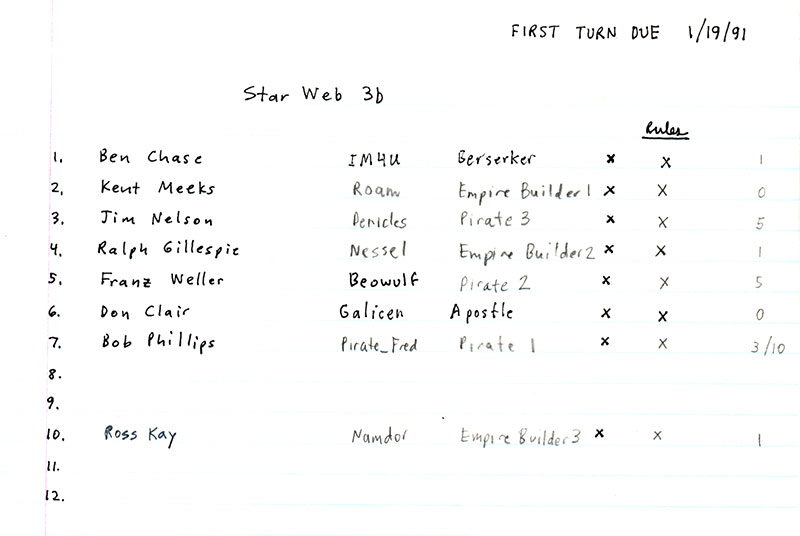 FIRST TURN DUE 1/19/91
Star Web 3b
Rules
1. Ben Chase IM4U Berserker x x 1
2. Kent Meeks Roam Empire Builder 1 x x 0
3. Jim Nelson Denicles Pirate 3 x x 5
4. Ralph Gillespie Nessel Empire Builder 2 x x 1
5. Franz Weller Beowulf Pirate 2 x x 5
6. Don Clair Galicen Apostle x x 0
7. Bob Phillips Pirate_Fred Pirate 1 x x 3/10
8.
9.
10. Ross Kay Namdor Empire Builder 3 x x 1
11.
12.